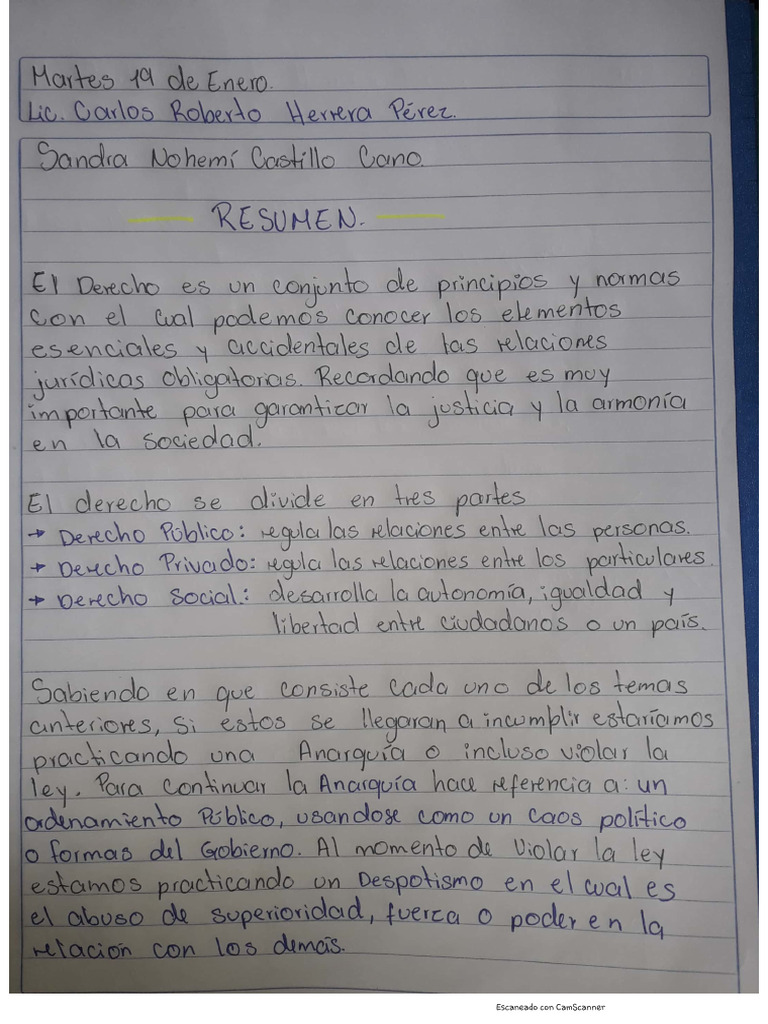 Martes 19 de Enero.
Lic. Carlos Roberto Herrera Pérez.
Sandra Nohemí Castillo Cano.
RESUMEN.
El Derecho es un conjunto de principios y normas
con el cual podemos conocer los elementos
esenciales y accidentales de las relaciones
jurídicas obligatorias. Recordando que es muy
importante para garantizar la justicia y la armonía
en la sociedad.
El derecho se divide en tres partes
→ Derecho Público: regula las relaciones entre las personas.
→ Derecho Privado: regula las relaciones entre los particulares.
→ Derecho Social: desarrolla la autonomía, igualdad y
libertad entre ciudadanos o un país.
Sabiendo en que consiste cada uno de los temas
anteriores, si estos se llegaran a incumplir estaríamos
practicando una Anarquía o incluso violar la
ley. Para continuar la Anarquía hace referencia a: un
ordenamiento Público, usandose como un caos político
o formas del Gobierno. Al momento de violar la ley
estamos practicando un Despotismo en el cual es
el abuso de superioridad, fuerza o poder en la
relación con los demás.
Escaneado con CamScanner